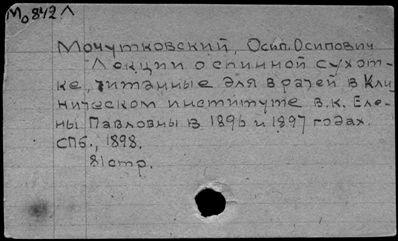 Мо842Л
Мочутковский, Осип Осипович
Лекции о спинной сухот-
ке, читанные для врачей в Кли
ническом институте в.к. Еле-
ны Павловны в 1896 и 1897 годах.
СПб., 1898.
81 стр.